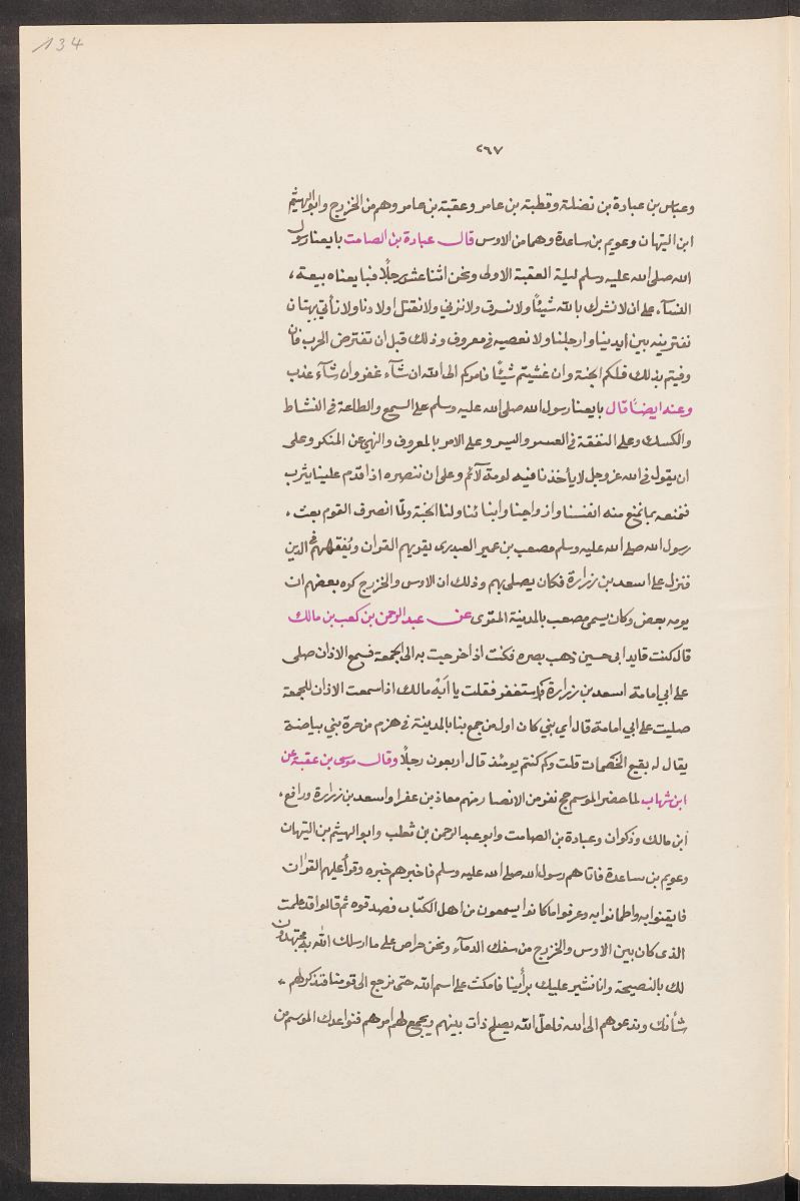 134
٢٦٧
وعباس بن عبادة بن نضلة وقطبة بن عامر وعقبة بن عامر وهم من الخزرج وابو الهيثم
ابن التيهان وعويم بن ساعدة وهما من الاوس قال عبادة بن الصامت بايعنا رسول
الله صلى الله عليه وسلم ليلة العقبة الاولى ونحن اثنا عشر رجلًا فبايعناه بيعة،
النسآء على ان لا نشرك بالله شيئًا ولا نسرق ولا نزني ولا نقتل اولادنا ولا نأتي ببهتان
نفترينه بين ايدينا وارجلنا ولا نعصيه في معروف وذلك قبل ان تفترض الحرب فان
وفيتم بذلك فلكم الجنة وان غشيتم شيئًا فامركم الى الله ان شآء غفر وان شآء عذب
وعنه ايضًا قال بايعنا رسول الله صلى الله عليه وسلم على السمع والطاعة في النشاط
والكسل وعلى النفقة في العسر واليسر وعلى الامر بالمعروف والنهي عن المنكر وعلى
ان يقول في الله عز وجل لا يأخذنا فيه لومة لآئم وعلى ان ننصره اذا قدم علينا يثرب
فنمنعه بما نمنع منه انفسنا وازواجنا وابنائنا ولنا الجنة ولمّا انصرف القوم بعث،
رسول الله صلى الله عليه وسلم مصعب بن عمير العبدرى يقويهم القران ويُفقههم في الدين
فنزل على اسعد بن زرارة فكان يصلى بهم وذلك ان الاوس والخزرج كره بعضهم ان
يومه بعض وكان يسمى مصعب بالمدينة المقرى عن عبد الرحمن بن كعب بن مالك
قال كنت قايد ابى حسين ذهب بصره فكنت اذا خرجت به الى الجمعة فسمع الاذان صلى
على ابي امامة اسعد بن زرارة واستغفر فقلت يا ابَهْ مالك اذا سمعت الاذان للجمعة
صليت على ابي امامة قال اي بني كان اول من جمع بنا بالمدينة في هزم من حرة بني بياضة
يقال له بقيع الخضمات قلت وكم كنتم يومئذ قال اربعون رجلًا وقال موسى بن عقبة عن
ابن شهاب لما حضر الموسم حج نفر من الانصار منهم معاذ بن عفرا واسعد بن زرارة ورافع،
ابن مالك وذكوان وعبادة بن الصامت وابو عبد الرحمن بن ثعلب وابو الهيثم بن التيهان
وعويم بن ساعدة فاتاهم رسول الله صلى الله عليه وسلم فاخبرهم خبره وقرأ عليهم القرآن
فايقنوا به واطمانوا به وعرفوا ما كانوا يسمعون من اهل الكتاب فصدقوه ثم قالوا قد علمت
الذى كان بين الاوس والخزرج من سفك الدمآء ونحن حراص على ما ارسلك الله به مجتهدون
لك بالنصيحة وانا نشير عليك برأينا فامكث على اسم الله حتى نرجع الى قومنا فنذكر لهم،
شأنك وندعوهم الى الله فلعل الله يصلح ذات بينهم ويجمع لهم امرهم فنواعدك الموسم من